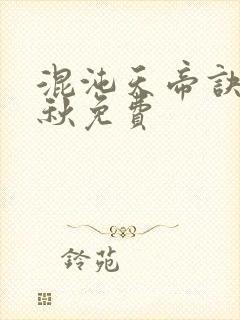 混沌天帝訣
秋免費
鈴苑